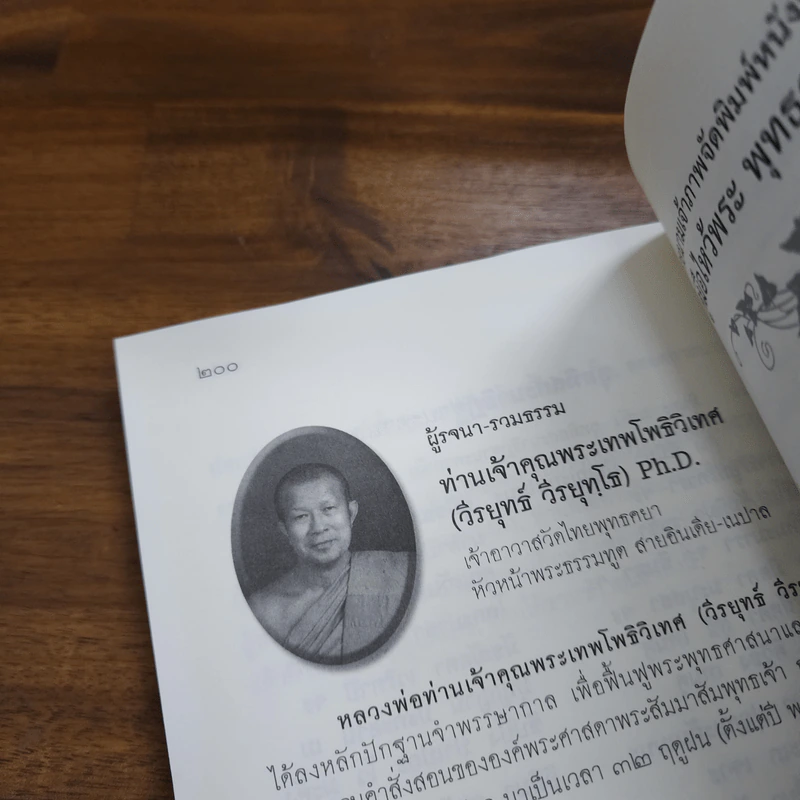 ๒๐๐
ผู้รจนา-รวมธรรม
ท่านเจ้าคุณพระเทพโพธิวิเทศ
(วีรยุทธ์ วีรยุทฺโธ) Ph.D.
เจ้าอาวาสวัดไทยพุทธคยา
หัวหน้าพระธรรมทูต สายอินเดีย-เนปาล
หลวงพ่อท่านเจ้าคุณพระเทพโพธิวิเทศ (วีรยุทธ์
ได้ลงหลักปักฐานจำพรรษากาล เพื่อฟื้นฟูพระพุทธศาสนา
คำสั่งสอนขององค์พระศาสดาพระสัมมาสัมพุทธเจ้า
มาเป็นเวลา ๓๒ ฤดูฝน (ตั้งแต่ปี
เจ้าภาพจัดพิมพ์หนัง
ไหว้พระ พุทธ